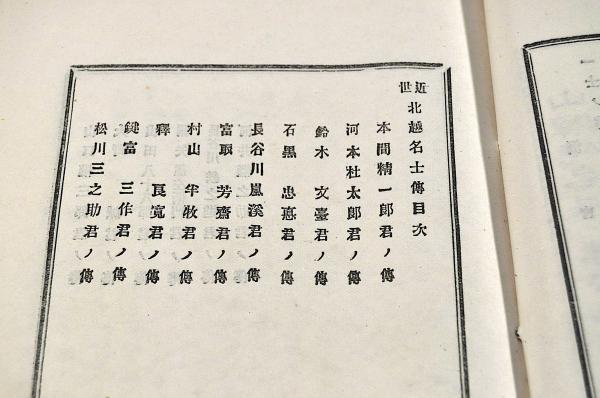 近世北越名士傳目次
本間精一郎君ノ傳
河本杜太郎君ノ傳
鈴木文臺君ノ傳
石黒忠悳君ノ傳
長谷川嵐溪君ノ傳
富取芳齋君ノ傳
村山半牧君ノ傳
釋良寛君ノ傳
鍵富三作君ノ傳
松川三之助君ノ傳